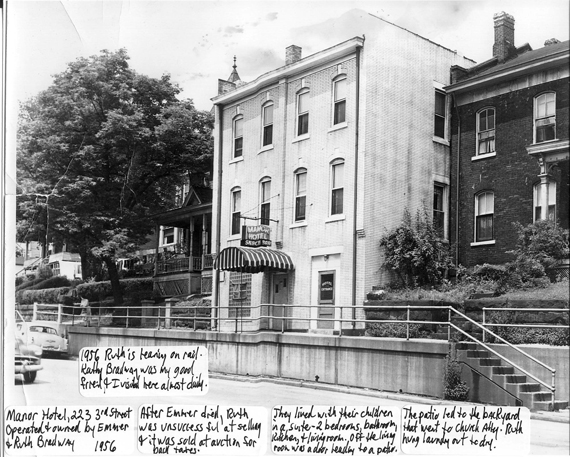 MANOR
HOTEL
1956 Ruth is leaning on rail.
Kathy Bradway was my good
friend & I visited here almost daily.
Manor Hotel, 223 3rd Street
Operated & owned by Emmer
& Ruth Bradway 1956
After Emmer died, Ruth
was unsuccessful at selling
& it was sold at auction for
back taxes.
They lived with their children
in a suite - 2 bedrooms, bathroom,
kitchen & livingroom. Off the living
room was a door leading to a patio.
The patio led to the backyard
that went to Church Alley. Ruth
hung laundry out to dry.